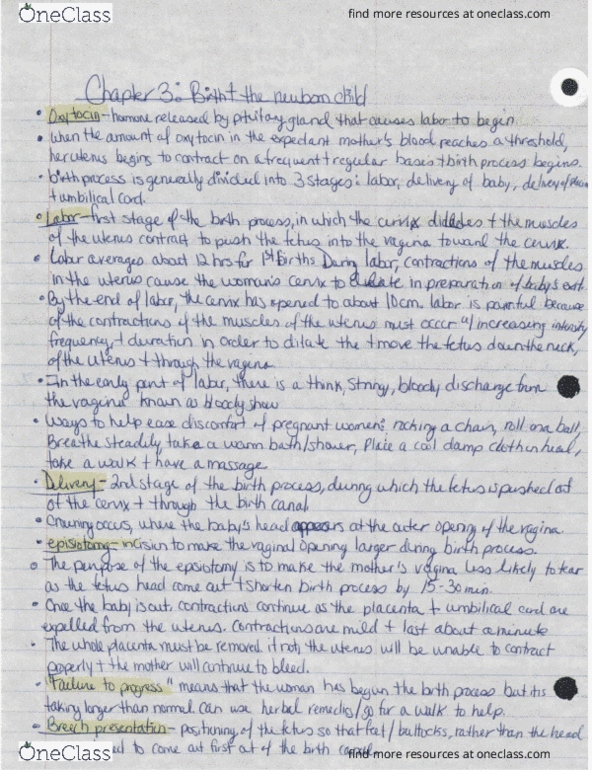 OneClass
find more resources at oneclass.com
Chapter 3: Birth + the newborn child
• Oxytocin - hormone released by pituitary gland that causes labor to begin.
• when the amount of oxytocin in the expectant mother's blood reaches a threshold,
her uterus begins to contract on a frequent + regular basis + birth process begins.
• birth process is generally divided into 3 stages: labor, delivery of baby, delivery of
+ umbilical cord.
• Labor - first stage of the birth process, in which the cervix dilates + the muscles
of the uterus contract to push the fetus into the vagina toward the cervix.
• Labor averages about 12 hrs for 1st Births During labor, contractions of the muscles
in the uterus cause the woman's cervix to dilate in preparation of baby's exit
• By the end of labor, the cervix has opened to about 10cm. labor is painful because
of the contractions of the muscles of the uterus must occur w/ increasing intensity
frequency, + duration in order to dilate the + move the fetus down the neck,
of the uterus + through the vagina
• In the early part of labor, there is a think, stringy, bloody discharge from
the vagina known as bloody show
• Ways to help ease discomfort of pregnant women: rocking a chair, roll on a ball,
Breathe steadily, take a warm bath/shower, Place a cool damp cloth on head,
take a walk + have a massage
• Delivery - 2nd stage of the birth process, during which the fetus is pushed out
of the cervix + through the birth canal
• Crowning occurs, where the baby's head appears at the outer opening of the vagina.
• episiotomy - incision to make the vaginal opening larger during birth process.
• The purpose of the episiotomy is to make the mother's vagina less likely to tear
as the fetus head come out + shorten birth process by 15-30 min.
• Once the baby is out, contractions continue as the placenta + umbilical cord are
expelled from the uterus. Contractions are mild + last about a minute
• The whole placenta must be removed if not, the uterus will be unable to contract
properly + the mother will continue to bleed.
• "Failure to progress" means that the woman has begun the birth process but it is
taking larger than normal can use herbal remedies/go for a walk to help.
• Breech presentation - positioning of the fetus so that feet/buttocks, rather than the head
to come out first of the birth
OneClass
find more resources at oneclass.com